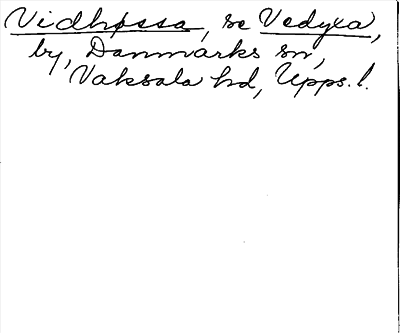 Vidhøssa, se Vedyxa,
by, Danmarks sn,
Vaksala hd, Upps. l.